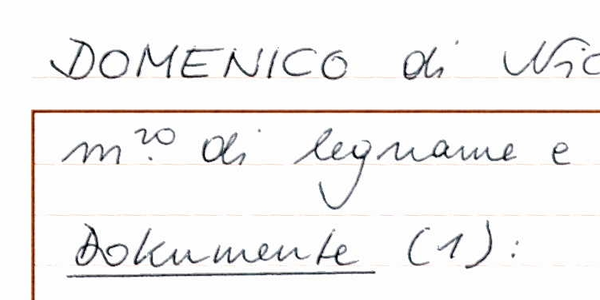 DOMENICO di Nic
m.ro di legname e
Dokumente (1):